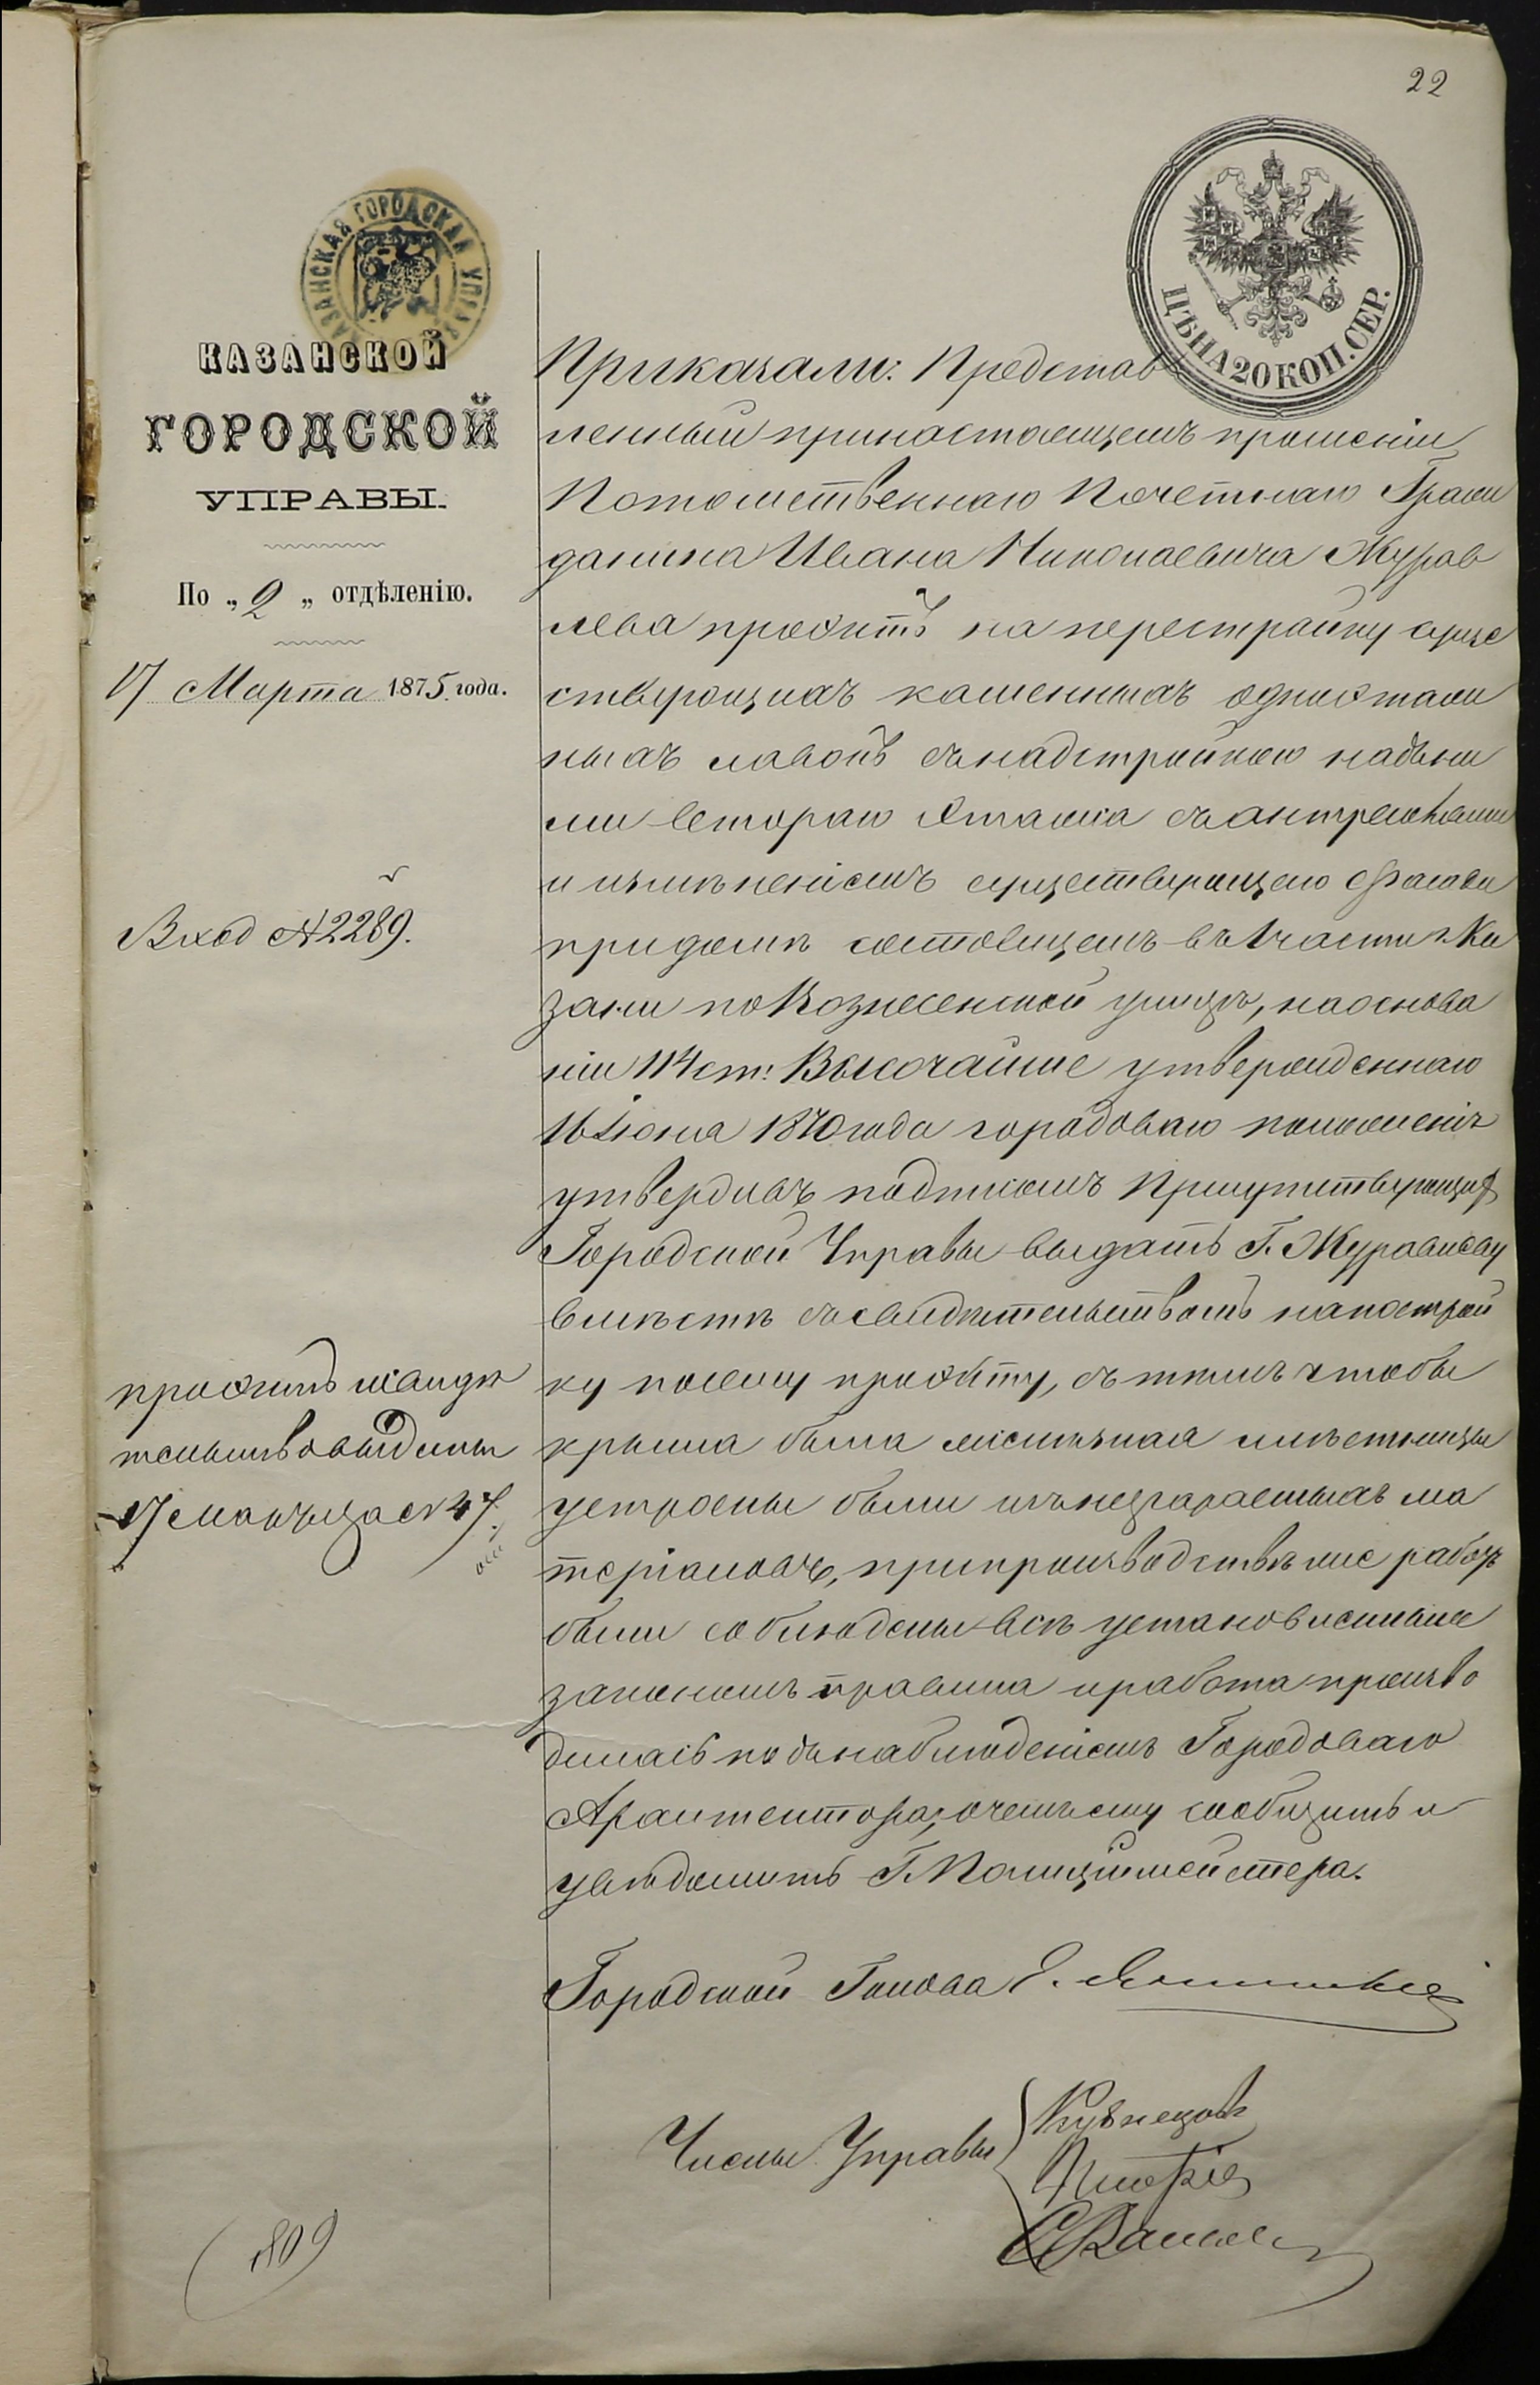 22
КАЗАНСКАЯ ГОРОДСКАЯ УПРАВА
ЦѢНА 20 КОП. СЕР.
КАЗАНСКОЙ
ГОРОДСКОЙ
УПРАВЫ.
По „2„ отдѣленію.
17 Марта 1875 года.
Вход № 2289.
проэктъ и свидѣ
тельство выданы
17 марта за № 47.
1809
Приказали: Представ
ленный принастоящемъ прошеніи
Потомственнаго Почетнаго Граж
данина Ивана Николаевича Журав
лева проэктъ на перестройку суще
ствующихъ каменныхъ одноэтаж
ныхъ лавокъ съ надстройкою надъ ни
ми втораго этажа съ антресолями
и измѣненіемъ существующаго фасада
при домѣ состоящемъ въ 1 части г. Ка
зани по Вознесенской улицѣ, на основа
ніи 114 ст: Высочайше утвержденнаго
16 Іюня 1870 года городоваго положенія
утвердивъ подписомъ Присутствующихъ
Городской Управы выдать Г. Журавлеву
вмѣстѣ съ свидѣтельствомъ на построй
ку по сему проэкту, съ тѣмъ чтобы
крыша была желѣзная лѣстницы
устроены были изъ несгараемыхъ ма
теріаловъ, при производствѣ же работъ
были соблюдены всѣ установленныя
закономъ правила и работа произво
дилась подъ наблюденіемъ Городоваго
Архитектора, о чемъ ему сообщить и
увѣдомить Г. Полиціймейстера.
Городской Голова
Члены Управы
Кузнецовъ